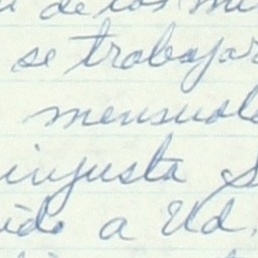 de los
se trabajar
mensual
injusta
ido a Ud.